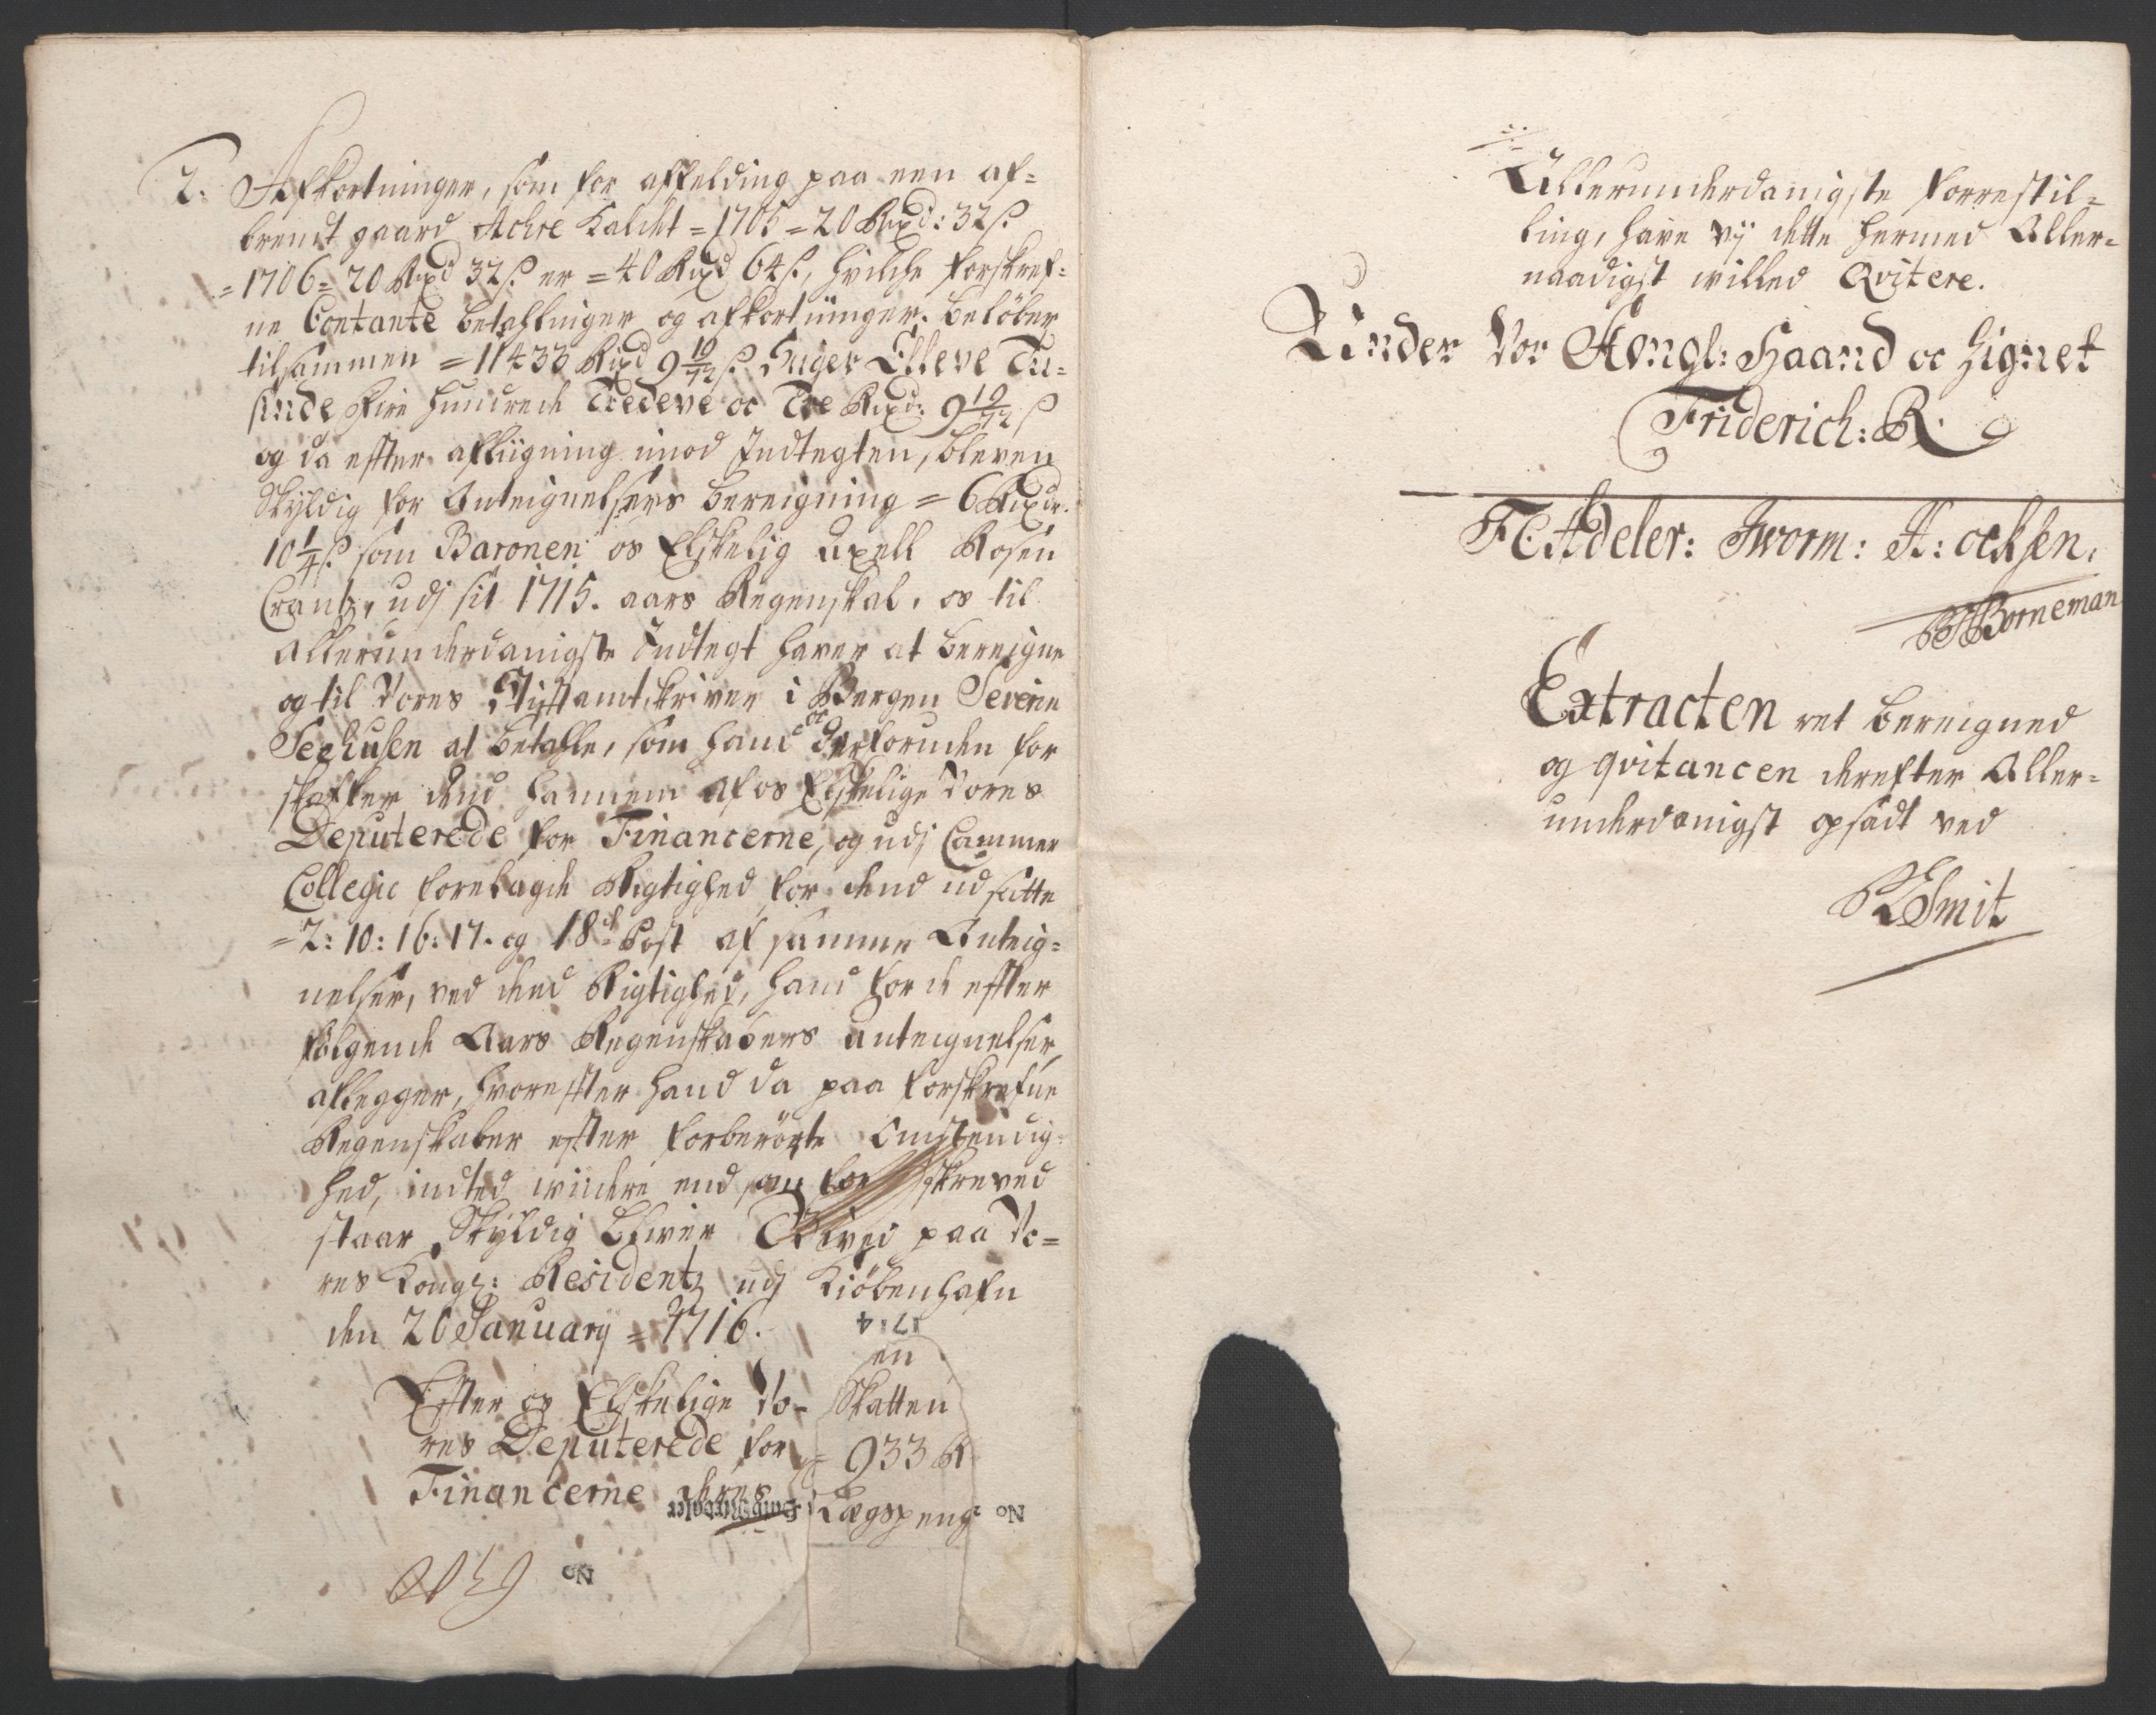 2. Afkortninger, som for affelding paa een af=
brendt gaard Achre kaldet = 1705 = 20 Rixd: 32 ß
= 1706 = 20 Rixd 32 ß er = 40 Rixd 64 ß, hvilche forskref=
ne Contante betahlinger og afkortninger beløber
tilsammen = 11433 Rixd 9 10/12 ß Siger Elleve Tu=
sinde fire hundrede Tredeve oc Tre Rixd: 9 10/12 ß
og da efter afliigning imod Indtegten, bleven
Skyldig for Anteignelsers bereigning = 6 Rixdr.
10 1/4 ß som Baronen os Elskelig Axell Rosen
Crantz, udj sit 1715. aars Regenskab, os til
Allerunderdanigste Indtegt haver at bereigne
og til Vores Stiftamtskriver i Bergen Severin
Seehusen at betahle, som hand oc derforuden for
skaffer dend hannem af os Elskelige Vores
Deputerede for Financerne, og udj Cammer
Collegie forelagde Rigtighed for dend udsatte
= 2: 10: 16: 17. og 18de Post af samme Anteig=
nelser, ved dend Rigtighed, hand for de efter
følgende Aars Regenskabers anteignelser,
aflegger, hvorefter hand da paa forskrefne
Regenskaber efter forberørte Omstendig=
hed, indted videre end som for skreved
staar Skyldig bliver Givet paa Vo=
res Kongl: Residentz udj Kiøbenhafn
den 20 January = 1716.
Efter os Elskelige Vo=
res Deputerede for
Financerne deres
1714
en
Skatten
= 933 R
Lægspeng
No
No
Allerunderdanigste forrestil=
ling, have vij dette hermed Aller=
naadigst villed Qvitere.
Under Vor Kongl: Haand oc Signet
Friderich: R.
FCAdeler: JWorm: A: ocksen.
Borneman
Extracten ret bereigned
og qvitancen derefter Aller=
underdanigst opsadt ved
Smit